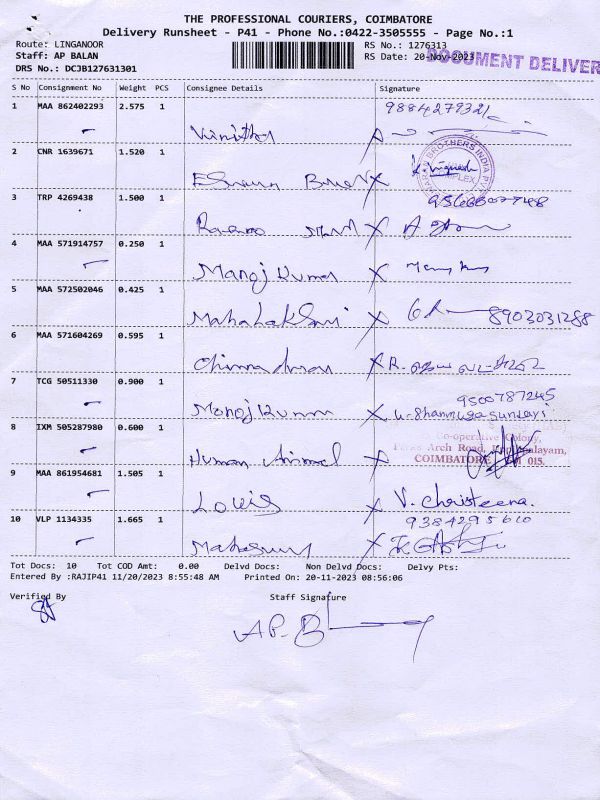 THE PROFESSIONAL COURIERS, COIMBATORE
Delivery Runsheet - P41 - Phone No.:0422-3505555 - Page No.:1
Route: LINGANOOR RS No.: 1276313
Staff: AP BALAN RS Date: 20-Nov-2023 DOCUMENT DELIVER
DRS No.: DCJB127631301
S No Consignment No Weight PCS Consignee Details Signature
1 MAA 862402293 2.575 1
Vinitha
2 CNR 1639671 1.520 1
BROTHERS INDIA
3 TRP 4269438 1.500 1
4 MAA 571914757 0.250 1
Manoj Kumar X
5 MAA 572502046 0.425 1
Mahalakshmi X 8903031288
6 MAA 571604269 0.595 1
X R.
7 TCG 50511330 0.900 1 9500787245
Manoj Kumar X U. Shanmuga Sundari
8 IXM 505287980 0.600 1 Co-operative Colony,
Arch Road,
COIMBATORE 015.
Human Animal X
9 MAA 861954681 1.505 1
Louis X V. Christeena.
10 VLP 1134335 1.665 1 9384295610
X
Tot Docs: 10 Tot COD Amt: 0.00 Delvd Docs: Non Delvd Docs: Delvy Pts:
Entered By :RAJIP41 11/20/2023 8:55:48 AM Printed On: 20-11-2023 08:56:06
Verified By Staff Signature
AP-B